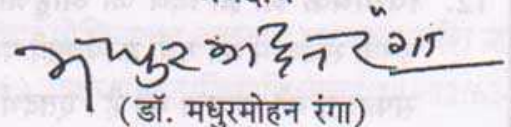 मधुर मोहन रंगा
(डॉ. मधुरमोहन रंगा)